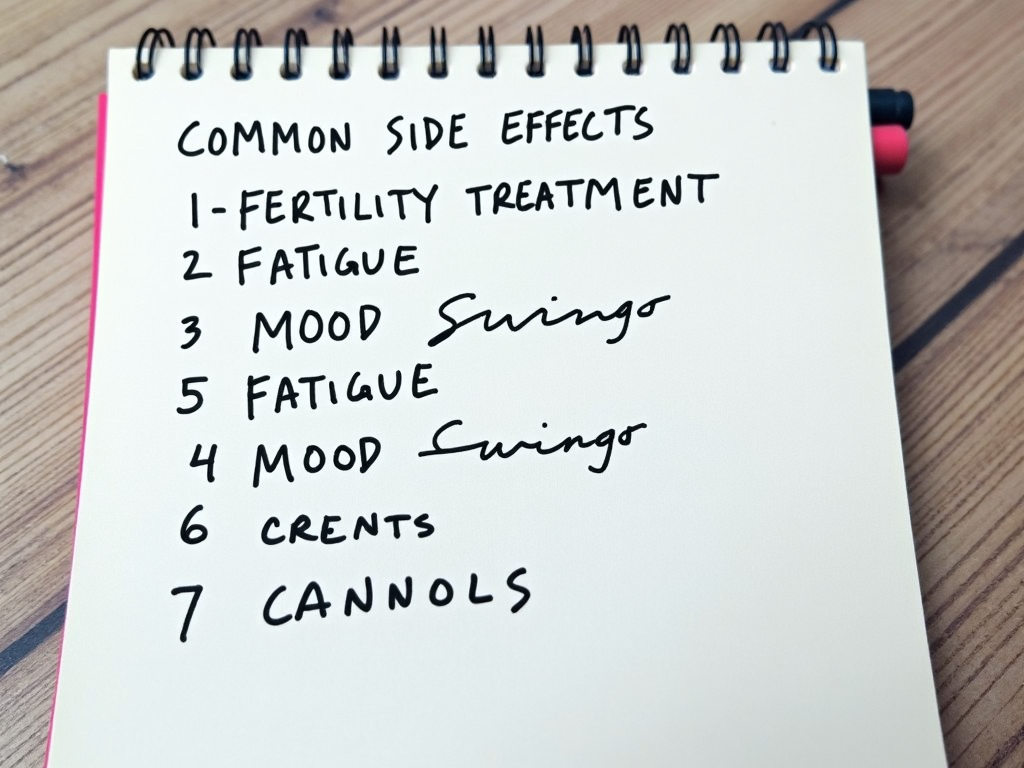 COMMON SIDE EFFECTS
1-FERTILITY TREATMENT
2 FATIGUE
3 MOOD Swingo
5 FATIGUE
4 MOOD Swingo
6 CRENTS
7 CANNOLS